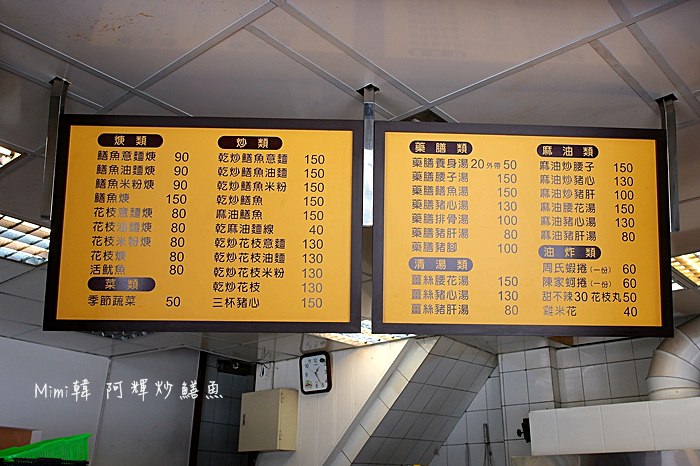 焿類
鱔魚意麵焿 90
鱔魚油麵焿 90
鱔魚米粉焿 90
鱔魚焿 150
花枝意麵焿 80
花枝油麵焿 80
花枝米粉焿 80
花枝焿 80
活魷魚 80
菜類
季節蔬菜 50
炒類
乾炒鱔魚意麵 150
乾炒鱔魚油麵 150
乾炒鱔魚米粉 150
乾炒鱔魚 150
麻油鱔魚 150
乾麻油麵線 40
乾炒花枝意麵 130
乾炒花枝油麵 130
乾炒花枝米粉 130
乾炒花枝 130
三杯豬心 150
藥膳類
藥膳養身湯20外帶50
藥膳腰子湯 150
藥膳鱔魚湯 150
藥膳豬心湯 130
藥膳排骨湯 100
藥膳豬肝湯 80
藥膳豬腳 100
清湯類
薑絲腰花湯 150
薑絲豬心湯 130
薑絲豬肝湯 80
麻油類
麻油炒腰子 150
麻油炒豬心 130
麻油炒豬肝 100
麻油腰花湯 150
麻油豬心湯 130
麻油豬肝湯 80
油炸類
周氏蝦捲(一份) 60
陳家蚵捲(一份) 60
甜不辣30花枝丸50
雞米花 40
Mimi韓 阿輝炒鱔魚